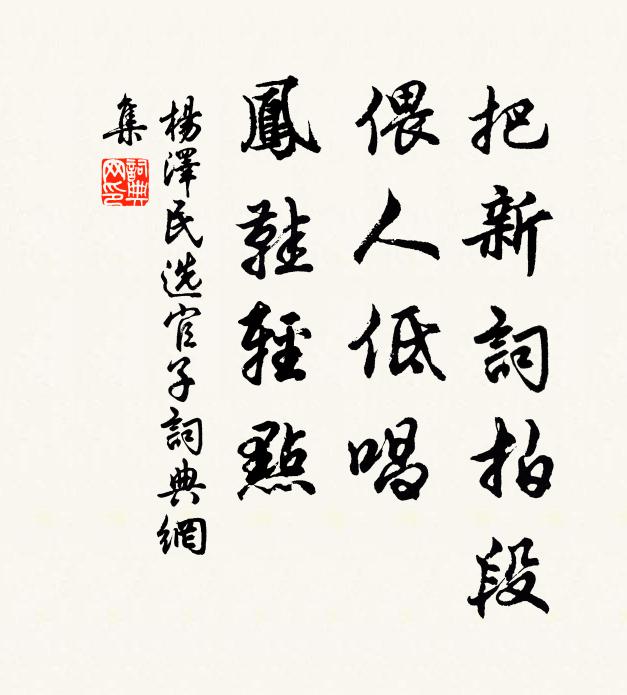 把新詞拍段
偎人低唱
鳳鞋輕點
楊澤民选官子詞典網
集
詞典
网印